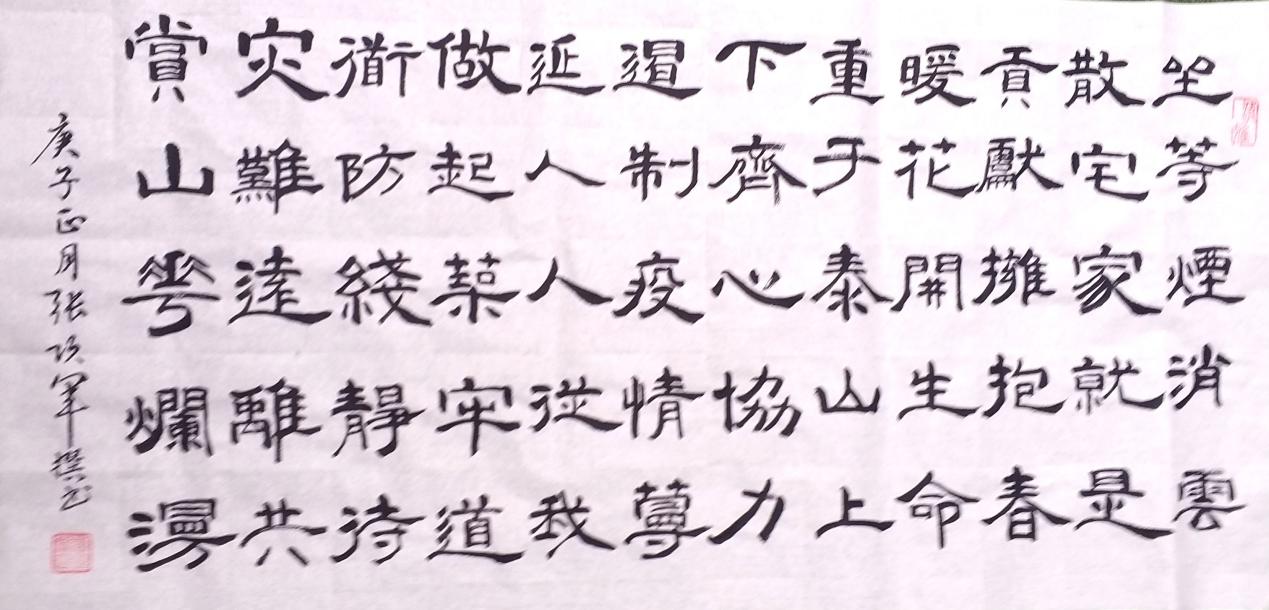 坐等煙消雲
散宅家就是
貢獻擁抱春
暖花開生命
重于泰山上
下齊心協力
遏制疫情蔓
延人人從我
做起築牢道
衜防綫靜待
災難遠離共
賞山華爛漫
庚子正月张軍撰书